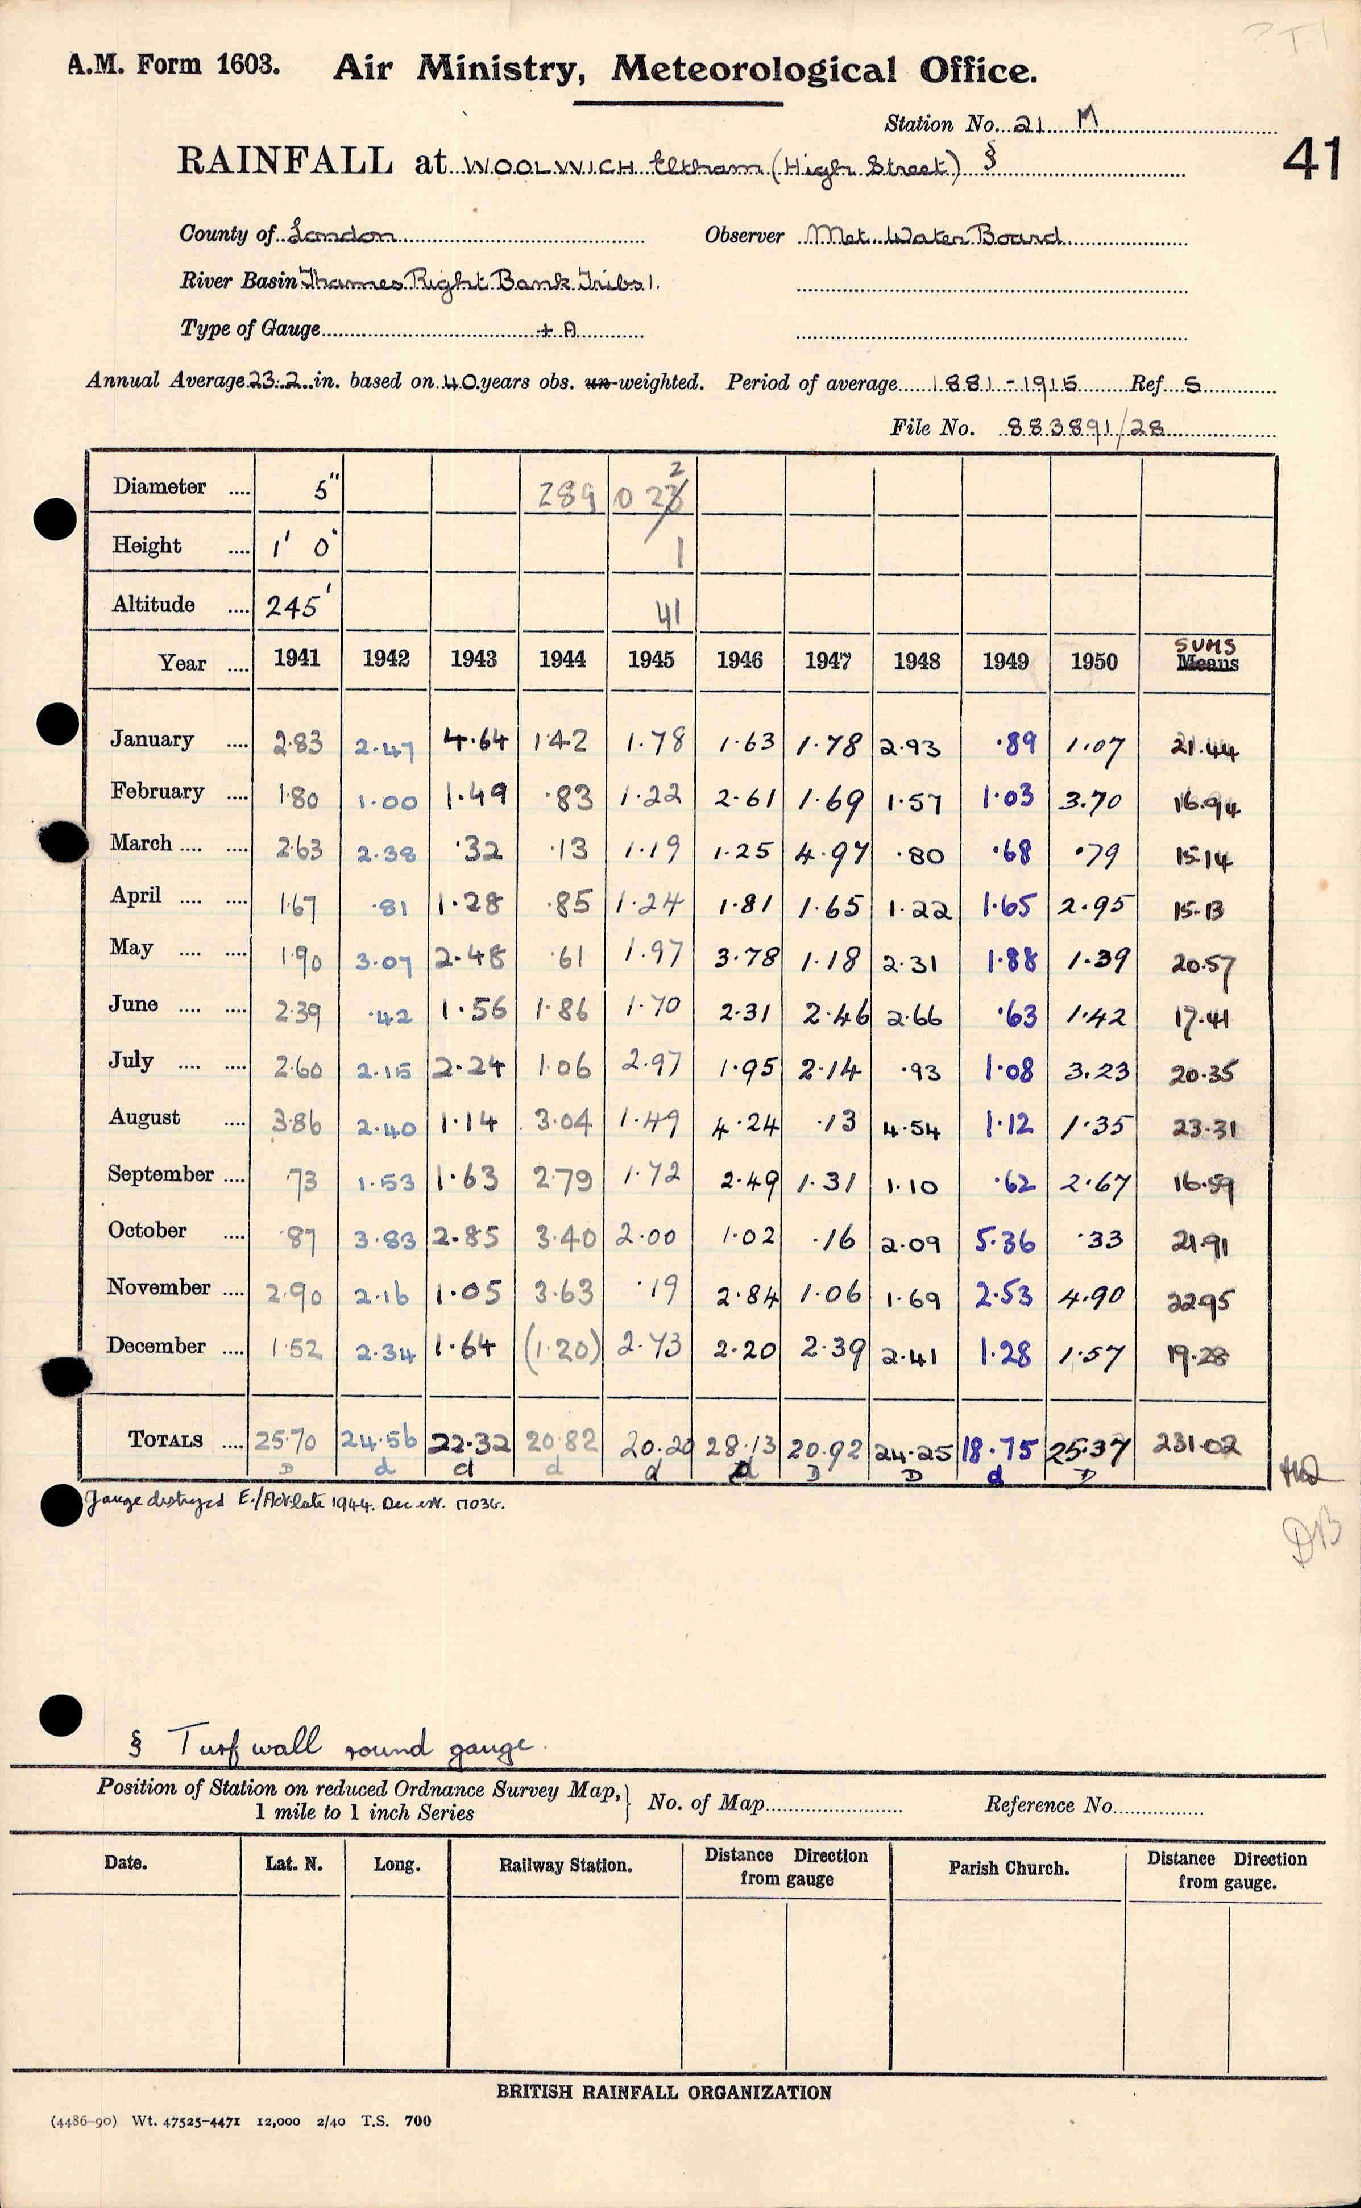 A.M. Form 1603. Air Ministry, Meteorological Office.
Station No. 21 M
RAINFALL at WOOLWICH Eltham (High Street) §
41
County of London Observer Met. Water Board
River Basin Thames Right Bank Tribs 1.
Type of Gauge + A
Annual Average 23.2 in. based on 40 years obs. un-weighted. Period of average 1881-1915 Ref. S
File No. 883891/28
Diameter .... 5" 289 0 23 2
Height .... 1' 0" 1
Altitude .... 245' 41
Year .... 1941 1942 1943 1944 1945 1946 1947 1948 1949 1950 SUMS Means
January .... 2.83 2.47 4.64 1.42 1.78 1.63 1.78 2.93 .89 1.07 21.44
February .... 1.80 1.00 1.49 .83 1.22 2.61 1.69 1.57 1.03 3.70 16.94
March .... .... 2.63 2.38 .32 .13 1.19 1.25 4.97 .80 .68 .79 15.14
April .... .... 1.67 .81 1.28 .85 1.24 1.81 1.65 1.22 1.65 2.95 15.13
May .... .... 1.90 3.07 2.48 .61 1.97 3.78 1.18 2.31 1.88 1.39 20.57
June .... .... 2.39 .42 1.56 1.86 1.70 2.31 2.46 2.66 .63 1.42 17.41
July .... .... 2.60 2.15 2.24 1.06 2.97 1.95 2.14 .93 1.08 3.23 20.35
August .... 3.86 2.40 1.14 3.04 1.49 4.24 .13 4.54 1.12 1.35 23.31
September .... .73 1.53 1.63 2.79 1.72 2.49 1.31 1.10 .62 2.67 16.59
October .... .87 3.83 2.85 3.40 2.00 1.02 .16 2.09 5.36 .33 21.91
November .... 2.90 2.16 1.05 3.63 .19 2.84 1.06 1.69 2.53 4.90 22.95
December .... 1.52 2.34 1.64 (1.20) 2.73 2.20 2.39 2.41 1.28 1.57 19.28
TOTALS .... 25.70 24.56 22.32 20.82 20.20 28.13 20.92 24.25 18.75 25.37 231.02
D d d d d d D D d D
Gauge destroyed late 1944. Dec est.
DB
§ Turf wall round gauge.
Position of Station on reduced Ordnance Survey Map, 1 mile to 1 inch Series } No. of Map Reference No.
Date. Lat. N. Long. Railway Station. Distance Direction from gauge Parish Church. Distance Direction from gauge.
BRITISH RAINFALL ORGANIZATION
(4486-90) Wt. 47525-4471 12,000 2/40 T.S. 700